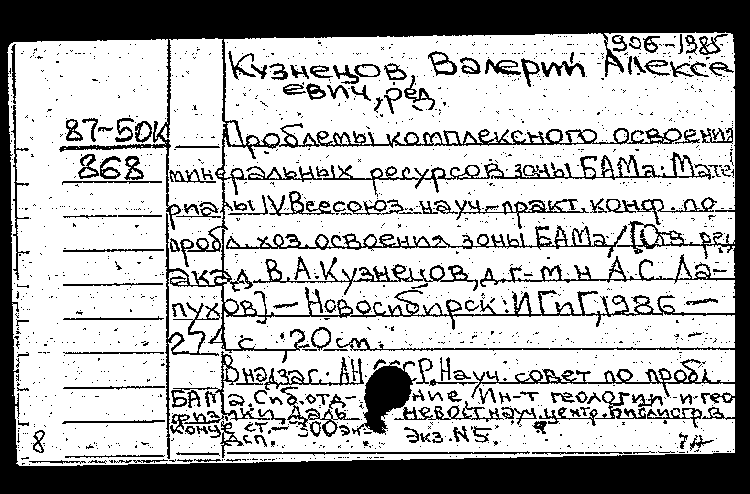 1906-1985
Кузнецов, Валерий Алексе
евич, ред.
87-50К
868
Проблемы комплексного освоения
минеральных ресурсов зоны БАМа: Мате
риалы IV Всесоюз. науч.-практ. конф. по
пробл. хоз. освоения зоны БАМа / [Отв. ред.
акад. В.А. Кузнецов, д. г.-м. н А.С. Ла-
пухов]. — Новосибирск: ИГиГ, 1986. —
274 с ; 20 см.
В надзаг.: АН СССР. Науч. совет по пробл.
БАМа. Сиб. отд-ние, Ин-т геологии и гео
физики, Даль невост. науч. центр. Библиогр. в
конце ст. — 300 эк-
Дсп. Экз. N5.
8